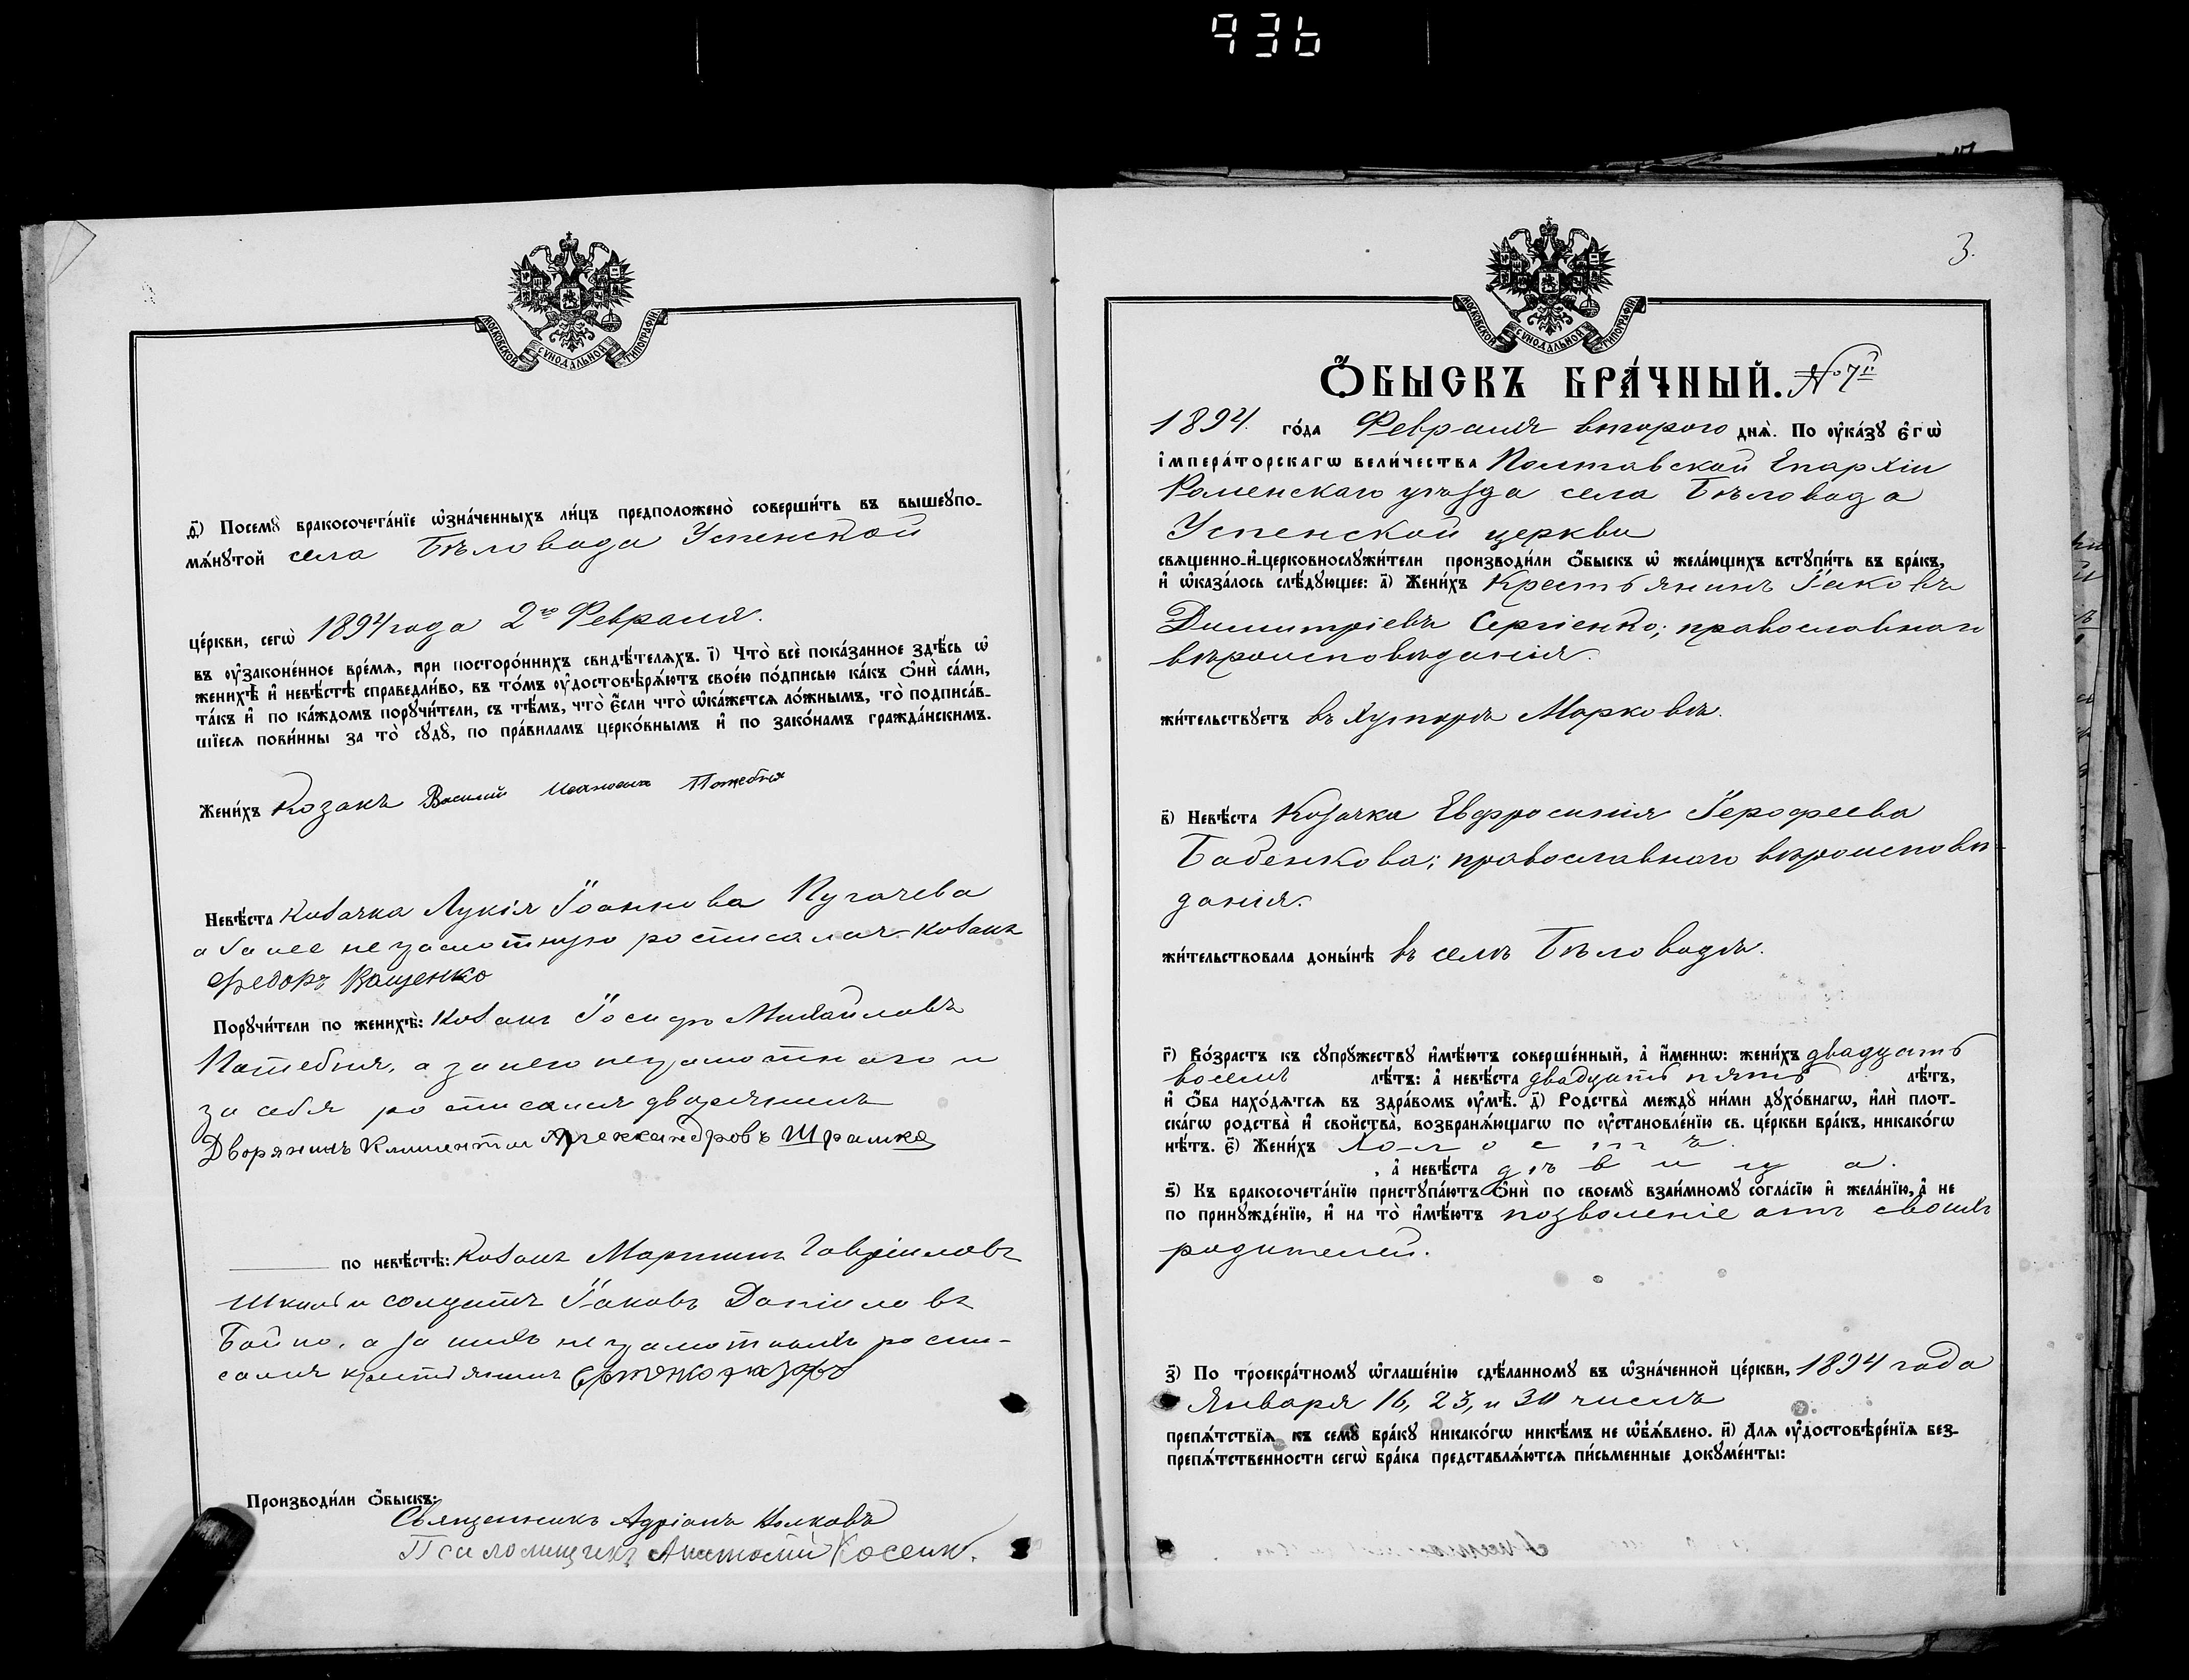 936
МОСКОВСКОЙ СѴНОДАЛЬНОЙ ТИПОГРАФІИ
д҃) Посемꙋ̀ бракосочета́нїе ѡ҆зна́ченныхъ ли́цъ предположено̀ соверши́ть въ вышеꙋпо-
мѧ́нꙋтой села Бѣловода Успенской
це́ркви, сегѡ̀ 1894 года 2го Февраля.
въ ᲂу҆законе́нное вре́мѧ, при посторо́ннихъ свидѣ́телѧхъ. і҃) Что̀ всѐ пока́занное здѣ́сь ѡ҆
женихѣ̀ и҆ невѣ́стѣ справедли́во, въ то́мъ ᲂу҆достовѣрѧ́ютъ свое́ю по́дписью ка́къ ѻ҆нѝ са́ми,
та́къ и҆ по ка́ждомъ порꙋчи́тели, съ тѣ́мъ, что̀ є҆́сли что̀ ѡ҆ка́жетсѧ ло́жнымъ, то̀ подписа́в-
шїесѧ пови́нны за то̀ сꙋдꙋ̀, по пра́виламъ церко́внымъ и҆ по зако́намъ гражда́нскимъ.
Жени́хъ Козакъ Василий Ивановъ Потебня
Невѣ́ста Козачка Лукія Іоаннова Пугачева
а за нее неграмотную росписался козакъ
Федоръ Ващенко
Порꙋчи́тели по женихѣ̀: Козакъ Іосифъ Михайловъ
Потебня, а за него неграмотнаго и
за себя росписался дворянинъ
Дворянинъ Климентий Александровъ Шрамко
по невѣ́стѣ: Козакъ Мартинъ Гавріиловъ
и солдатъ Іаковъ Даніиловъ
Бойко, а за нихъ неграмотныхъ роспи-
сался крестьянинъ
Производи́ли ѻ҆́быскъ:
Священникъ Адріанъ Волковъ
Псаломщикъ Анатолій Косенко.
3.
МОСКОВСКОЙ СѴНОДАЛЬНОЙ ТИПОГРАФІИ
Ѻ҆́БЫСКЪ БРА́ЧНЫЙ. № 7й
1894. го́да Февраля второго днѧ̀. По ᲂу҆ка́зꙋ є҆гѡ̀
і҆мпера́торскагѡ вели́чества Полтавской Епархіи
Роменскаго уѣзда села Бѣловода
Успенской церкви
свѧще́нно-и҆-церковнослꙋжи́тели производи́ли ѻ҆́быскъ ѡ҆ жела́ющихъ встꙋпи́ть въ бра́къ,
и҆ ѡ҆каза́лось слѣ́дꙋющее: а҃) Жени́хъ Крестьянинъ Іаковъ
Димитріевъ Сергіенко; православнаго
вѣроисповѣданія.
жи́тельствꙋетъ въ хуторѣ Марковѣ.
в҃) Невѣ́ста Козачка Евфросинія Іерофеева
Бабенкова; православнаго вѣроисповѣ-
данія.
жи́тельствовала доны́нѣ въ селѣ Бѣловодѣ.
г҃) Во́зрастъ къ сꙋпрꙋ́жествꙋ и҆мѣ́ютъ соверше́нный, а҆ и҆́меннѡ: жени́хъ двадцать
восемь лѣ́тъ: а҆ невѣ́ста двадцать пять лѣ́тъ,
и҆ ѻ҆́ба нахо́дѧтсѧ въ здра́вомъ ᲂу҆мѣ̀. д҃) Родства̀ междꙋ̀ ни́ми дꙋхо́внагѡ, и҆лѝ плот-
ска́гѡ родства̀ и҆ сво́йства̀, возбранѧ́ющагѡ по ᲂу҆становле́нїю св. це́ркви бра́къ, никако́гѡ
нѣ́тъ. є҃) Жени́хъ холостъ.
, а҆ невѣ́ста дѣвица.
ѕ҃) Къ бракосочета́нїю пристꙋпа́ютъ ѻ҆нѝ по своемꙋ̀ взаи́мномꙋ согла́сїю и҆ жела́нїю, а҆ не
по принꙋжде́нїю, и҆ на то̀ и҆мѣ́ютъ позволеніе отъ своихъ
родителей.
з҃) По троекра́тномꙋ ѡ҆глаше́нїю сдѣ́ланномꙋ въ ѡ҆зна́ченной це́ркви, 1894 года
Января 16, 23, и 30 числъ
препѧ́тствїѧ къ семꙋ̀ бра́кꙋ никако́гѡ никѣ́мъ не ѡ҆б̾ѧ́влено. и҃) Длѧ ᲂу҆достовѣре́нїѧ без-
препѧ́тственности сегѡ̀ бра́ка представлѧ́ютсѧ пи́сьменные докꙋме́нты: